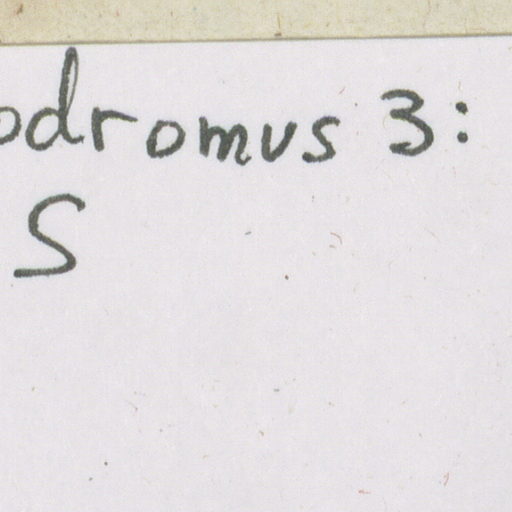 odromus 3:
S